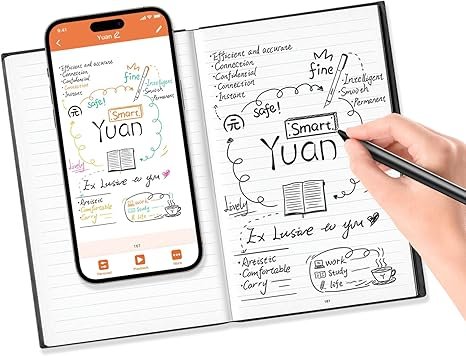 9:41
Yuan
·Efficient and accurate
·Connection
·Confidential
·Connection
·Instant
fine
·Intelligent
·Smooth
·Permanent
safe!
Smart
Yuan
Lively
Ex Lusive to you
·Artistic
·Comfortable
·Carry
work
Study
life
161
Playback
More
·Efficient and accurate
·Connection
·Confidential
·Connection
·Instant
fine
·Intelligent
·Smooth
·Permanent
safe!
Smart
Yuan
Lively
Ex Lusive to you
·Artistic
·Comfortable
·Carry
work
Study
life
161